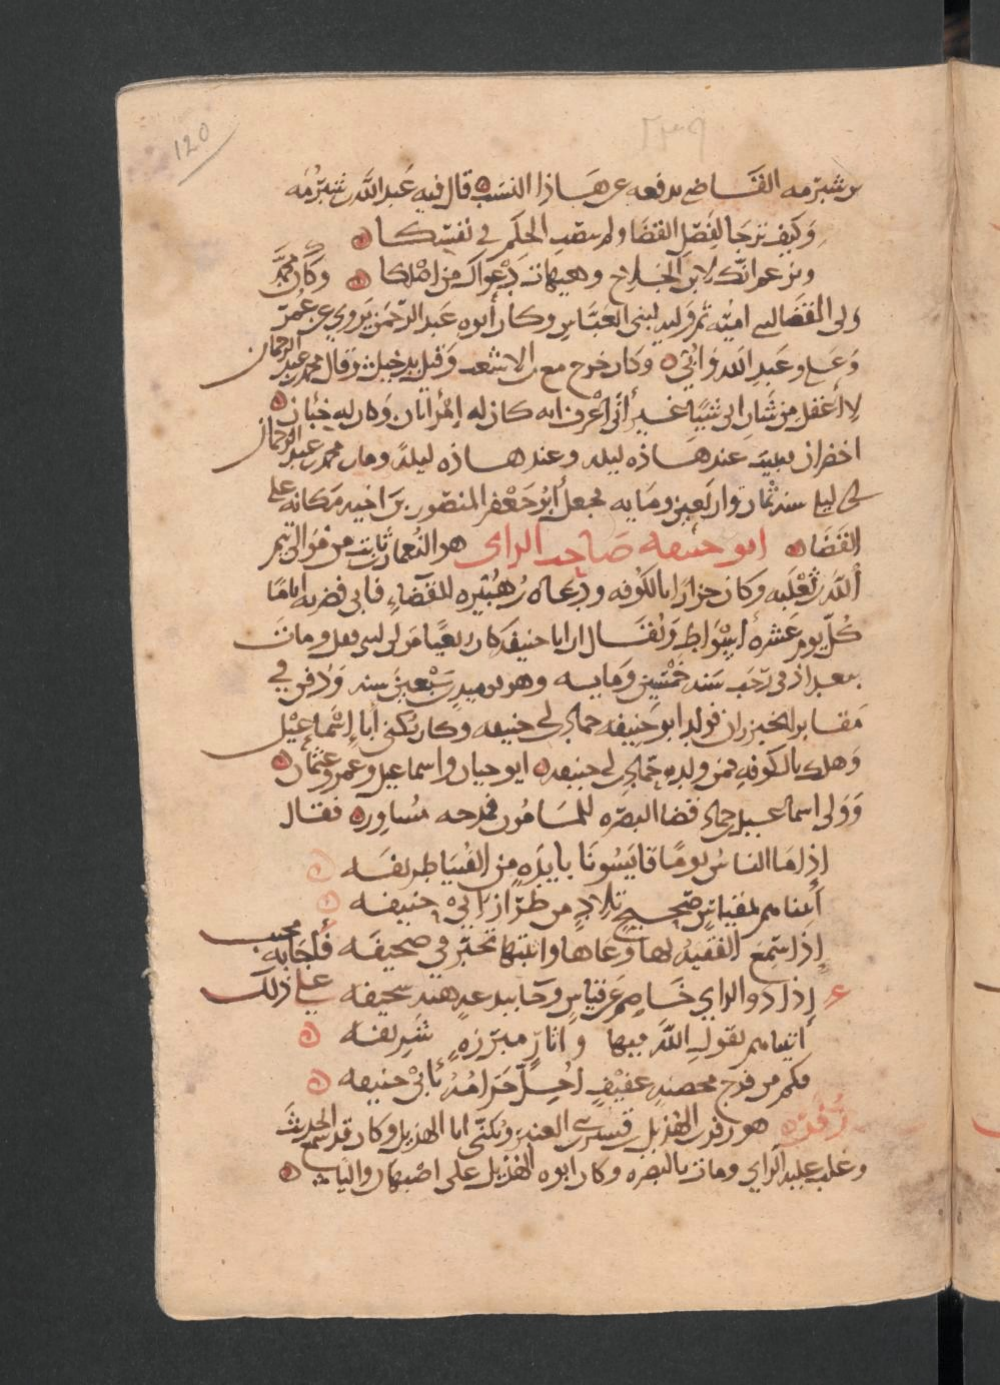 120
بن شبرمه القاضي يدفعه عن هاذا النسب قال فيه عبد الله بن شبرمه
وكيف ترجا لفصل القضا ولم تصب الحكم في نفسكا
وتزعم انك لابن الجلاح وهيهات دعواك من اصلكا وكان محمد
ولي القضا لبني امية ثم وليه لبني العباس وكان أبوه عبد الرحمن يروي عن عمر
وعلي وعبد الله وابي وكان خرج مع بن الاشعث وقتل بدجيل وقال محمد بن عبد الرحمان
لا أعقل من شان ابي شيا غير أني أعرف انه كان له إمرأتان وكان له حبان
اخضران فيبيت عند هاذه ليله وعند هاذه ليلة ومات محمد بن عبد الرحمان
بن ابي ليلى سنه ثمان واربعين ومايه فجعل أبو جعفر المنصور بن اخيه مكانه على
القضا ابو حنيفه صاحب الراي هو النعمان بن ثابت من موالي تيم
الله بن ثعلبه وكان خزازا بالكوفه ودعاه بن هبيره للقضاء فابى فضربه اياما
كل يوم عشرة اسواط ويقال ان ابا حنيفه كان ربعيا مولى لبني قفل ومات
ببغداد في رجب سنه خمسين ومايه وهو يوميذ بن سبعين سنه ودفن في
مقابر الخيزران فولد ابو حنيفه حماد بن ابي حنيفه وكان يكنى أبا إسماعيل
وهلك بالكوفه فمن ولد حماد بن ابي حنيفه ابو حيان واسماعيل وعمر وعثمان
وولي اسماعيل بن حماد قضا البصره للمامون فمدحه مساور فقال
إذا ما الناس يوما قايسونا بابدة من الفتيا طريفه
أتيناهم بمقياس صحيح تلاد من طراز ابي حنيفه
إذا سمع الفقيه لها وعاها واثبتها بحبر في صحيفه فأجابه مجيب
إذا ذو الراي خاصم عن قياس وجا ببدعة هنة سخيفه على ذلك
أتيناهم بقول الله فيها واثار مبرزة شريفه
فكم من فرج محصنة عفيف أحل حرامه بأبي حنيفه
زفر هو زفر بن الهذيل بن قيس من بني العنبر ويكنى ابا الهذيل وكان قد سمع الحديث
وغلب عليه الراي ومات بالبصره وكان ابوه الهذيل على اصبهان